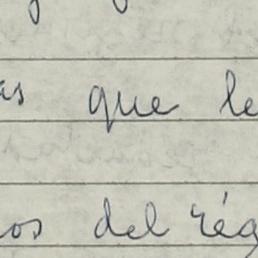 as que le
os del rég